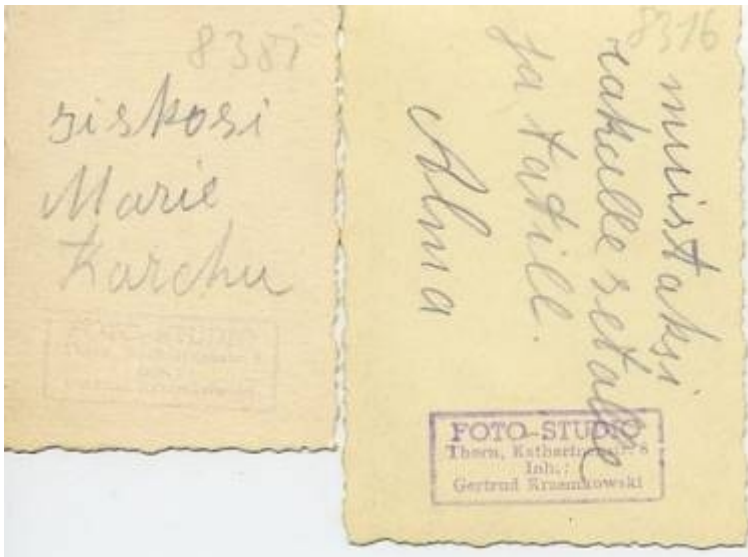 8381
siskosi
Marie
Karchu
FOTO-STUDIO
8316
muistoksi
rakalle setälle
ja tatill.
Alma
FOTO-STUDIO
Thorn, Katharinenstr. 8
Inh.:
Gertrud Krzemkowski